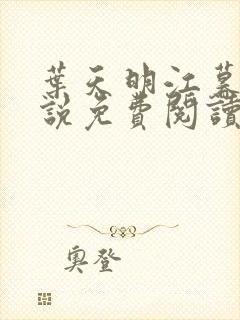 葉天明江慕
說免費閱讀
奧登